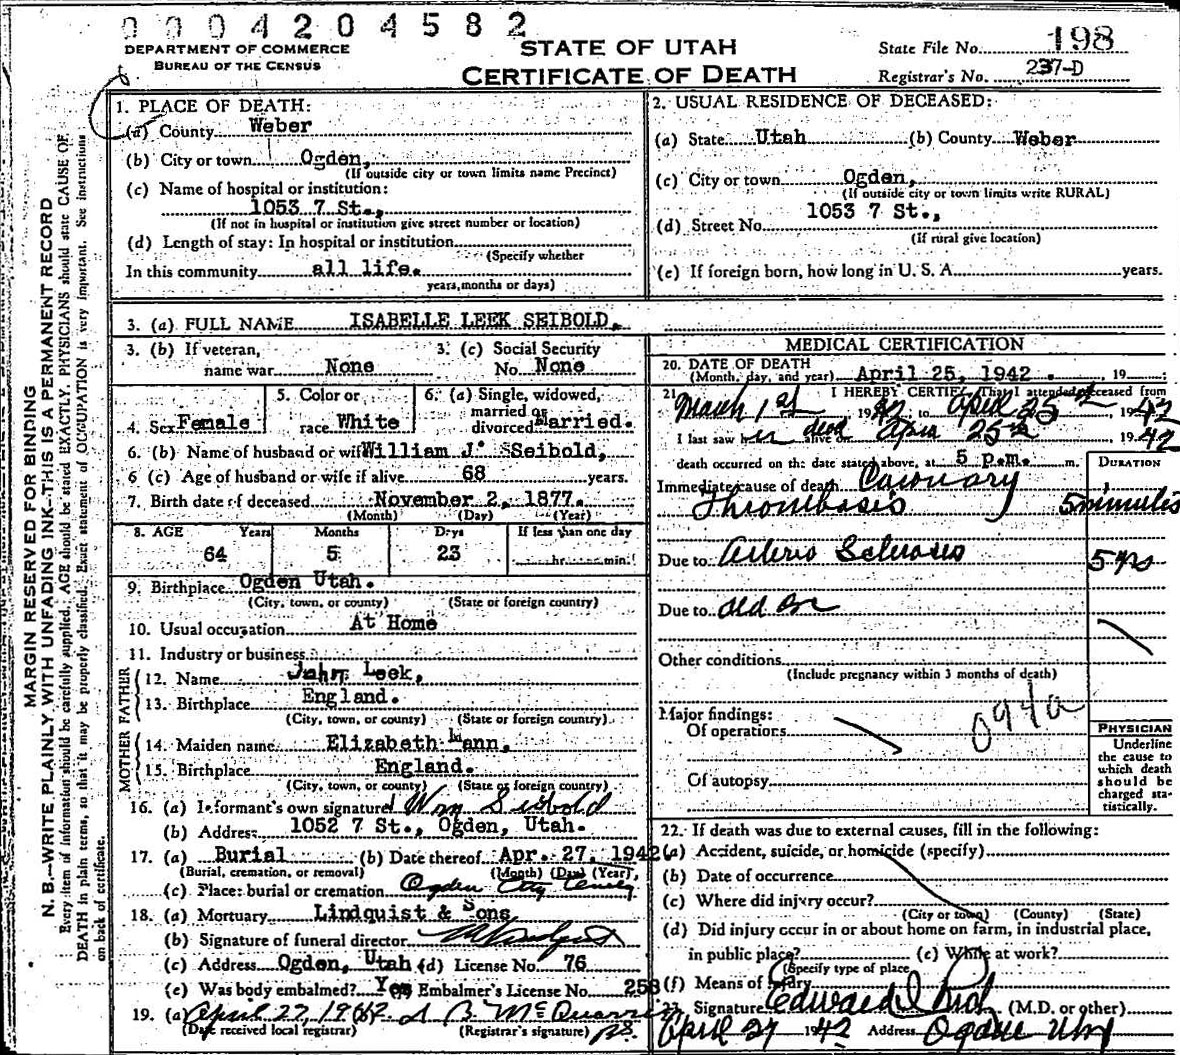 0004204582
DEPARTMENT OF COMMERCE
BUREAU OF THE CENSUS
STATE OF UTAH
CERTIFICATE OF DEATH
State File No. 198
Registrar's No. 237-D
MARGIN RESERVED FOR BINDING
N. B.—WRITE PLAINLY WITH UNFADING INK—THIS IS A PERMANENT RECORD
Every item of information should be carefully supplied. AGE should be stated EXACTLY. PHYSICIANS should state CAUSE OF
DEATH in plain terms, so that it may be properly classified. Exact statement of OCCUPATION is very important. See instructions
on back of certificate.
1. PLACE OF DEATH:
(a) County Weber
(b) City or town Ogden,
(If outside city or town limits name Precinct)
(c) Name of hospital or institution:
1053 7 St.,
(If not in hospital or institution give street number or location)
(d) Length of stay: In hospital or institution
(Specify whether
In this community all life.
years, months or days)
2. USUAL RESIDENCE OF DECEASED:
(a) State Utah (b) County Weber
(c) City or town Ogden,
(If outside city or town limits write RURAL)
(d) Street No. 1053 7 St.,
(If rural give location)
(e) If foreign born, how long in U. S. A. years.
3. (a) FULL NAME ISABELLE LEEK SEIBOLD.
3. (b) If veteran, name war None
3. (c) Social Security No. None
4. Sex Female
5. Color or race White
6. (a) Single, widowed, married or divorced Married.
6. (b) Name of husband or wife William J. Seibold,
6 (c) Age of husband or wife if alive 68 years.
7. Birth date of deceased November 2, 1877.
(Month) (Day) (Year)
8. AGE Years Months Days If less than one day
64 5 23 hr. min.
9. Birthplace Ogden Utah.
(City, town, or county) (State or foreign country)
10. Usual occupation At Home
11. Industry or business
FATHER
12. Name John Leek,
13. Birthplace England.
(City, town, or county) (State or foreign country)
MOTHER
14. Maiden name Elizabeth Mann,
15. Birthplace England.
(City, town, or county) (State or foreign country)
16. (a) Informant's own signature Wm Seibold
(b) Address 1052 7 St., Ogden, Utah.
17. (a) Burial (b) Date thereof Apr. 27, 1942
(Burial, cremation, or removal) (Month) (Day) (Year)
(c) Place: burial or cremation Ogden City
18. (a) Mortuary Lindquist & Sons
(b) Signature of funeral director
(c) Address Ogden, Utah (d) License No. 76
(e) Was body embalmed? Yes Embalmer's License No. 258
19. (a) April 27, 1942
(Date received local registrar) (Registrar's signature)
MEDICAL CERTIFICATION
20. DATE OF DEATH
(Month, day, and year) April 25, 1942. , 19
21. I HEREBY CERTIFY, That I attended deceased from
March 1st 1942, to April 25th 1942
I last saw her dead alive on April 25th, 1942
death occurred on the date stated above, at 5 p.m. m.
DURATION
Immediate cause of death Coronary
Thrombosis 5 minutes
Due to Arterio Sclerosis 5 yrs
Due to old age
Other conditions
(Include pregnancy within 3 months of death)
094a
Major findings:
Of operations
Of autopsy
PHYSICIAN
Underline
the cause to
which death
should be
charged sta-
tistically.
22. If death was due to external causes, fill in the following:
(a) Accident, suicide, or homicide (specify)
(b) Date of occurrence
(c) Where did injury occur?
(City or town) (County) (State)
(d) Did injury occur in or about home on farm, in industrial place,
in public place? (e) While at work?
(Specify type of place
(f) Means of Injury
23. Signature Edward I Rich (M.D. or other)
April 27 1942 Address Ogden Utah